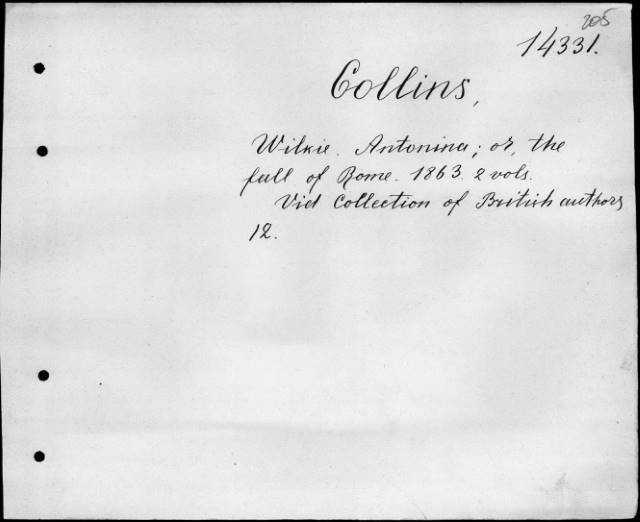 205
14331.
Collins,
Wilkie. Antonina; or, the
fall of Rome. 1863. 2 vols.
Vid Collection of British authors
12.